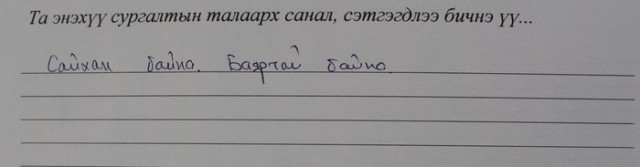 Та энэхүү сургалтын талаарх санал, сэтгэгдлээ бичнэ үү...
Сайхан байна. Баяртай байна.